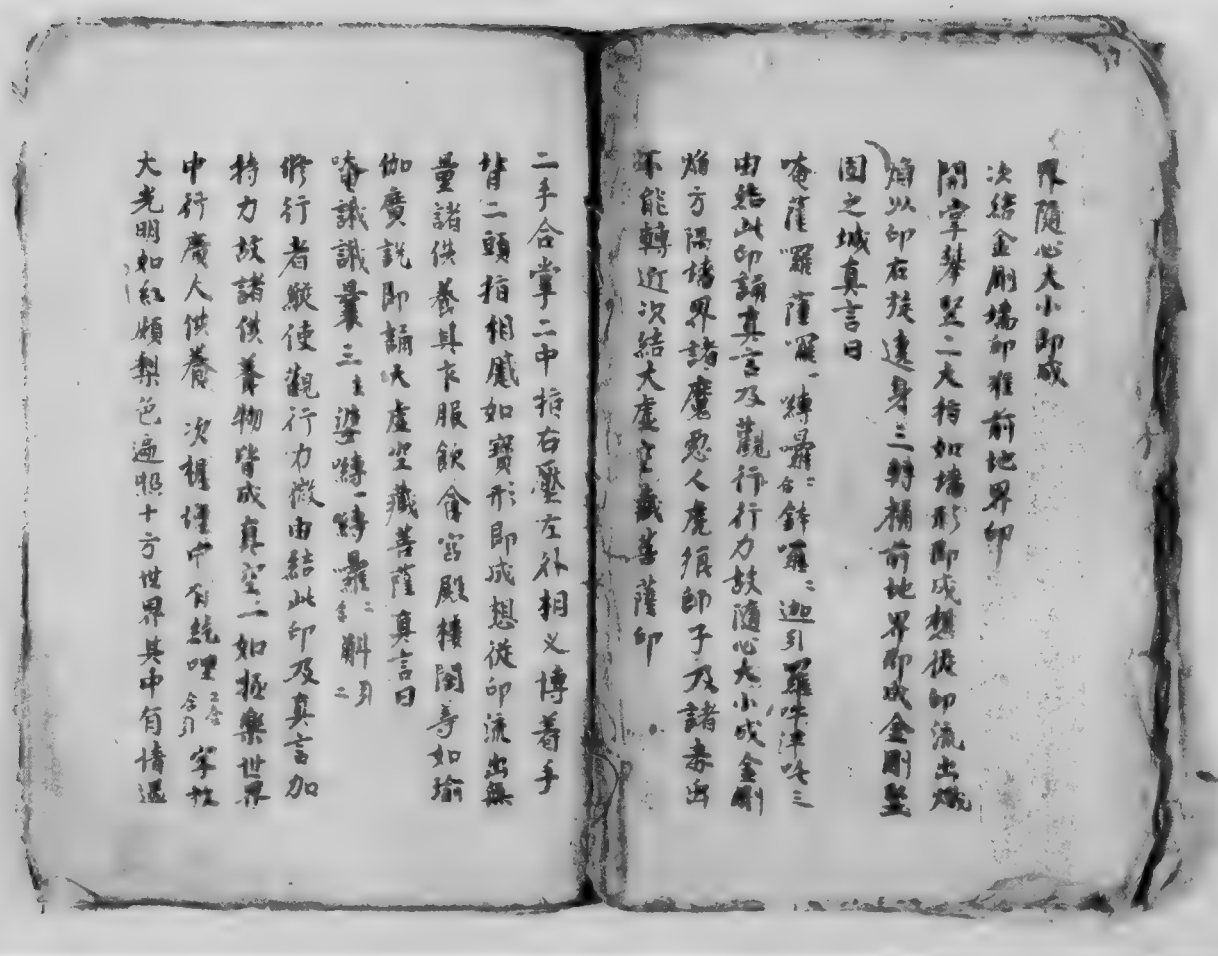 界隨心大小即成
次結金剛墻印准前地界印
開掌攀竪二大指如墻形即成想從印流出熾
焰以印右旋遶身三轉稱前地界即成金剛堅
固之城真言曰
唵薩囉薩囉一嚩曩二合鉢囉二迦引羅吽泮吒三
由結此印誦真言及觀行行力故隨心大小成金剛
焰方隅墻界諸魔惡人虎狼師子及諸毒虫
不能轉近次結大虛空藏菩薩印
二手合掌二中指右壓左外相叉博著手
背二頭指相蹙如寶形即成想從印流出無
量諸供養具衣服飲食宮殿樓閣等如瑜
伽廣説即誦大虛空藏菩薩真言曰
唵誐誐曩三婆嚩一嚩囉二合斛引二
修行者縱使觀行力微由結此印及真言加
持力故諸供養物皆成真空一如極樂世界
中行廣人供養 次想壇中有紇哩二合引字放
大光明如紅頗梨色遍照十方世界其中有情遇